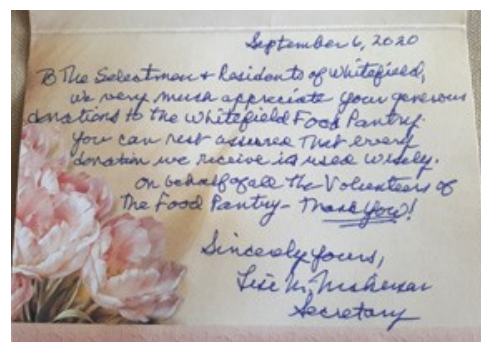 September 6, 2020
To The Selectmen + Residents of Whitefield,
we very much appreciate your generous
donations to the Whitefield Food Pantry.
You can rest assured that every
donation we receive is used wisely.
On behalf of all The Volunteers of
The Food Pantry - Thank You!
Sincerely yours,
M.
Secretary